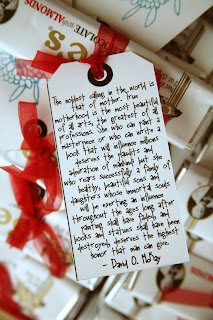 CHOCOLATE ALMONDS
The noblest calling in the world is
that of mother. True
motherhood is the most beautiful
of all arts, the greatest of all
professions. She who can paint a
masterpiece or who can write a
book that will influence millions
deserves the plaudits and
admiration of mankind but she
who rears successfully a family of
healthy, beautiful sons and
daughters whose immortal souls
will be exerting an influence
throughout the ages long after
painting shall have faded, and
books and statues shall have been
destroyed, deserves the highest
honor that man can give.
- David O. McKay